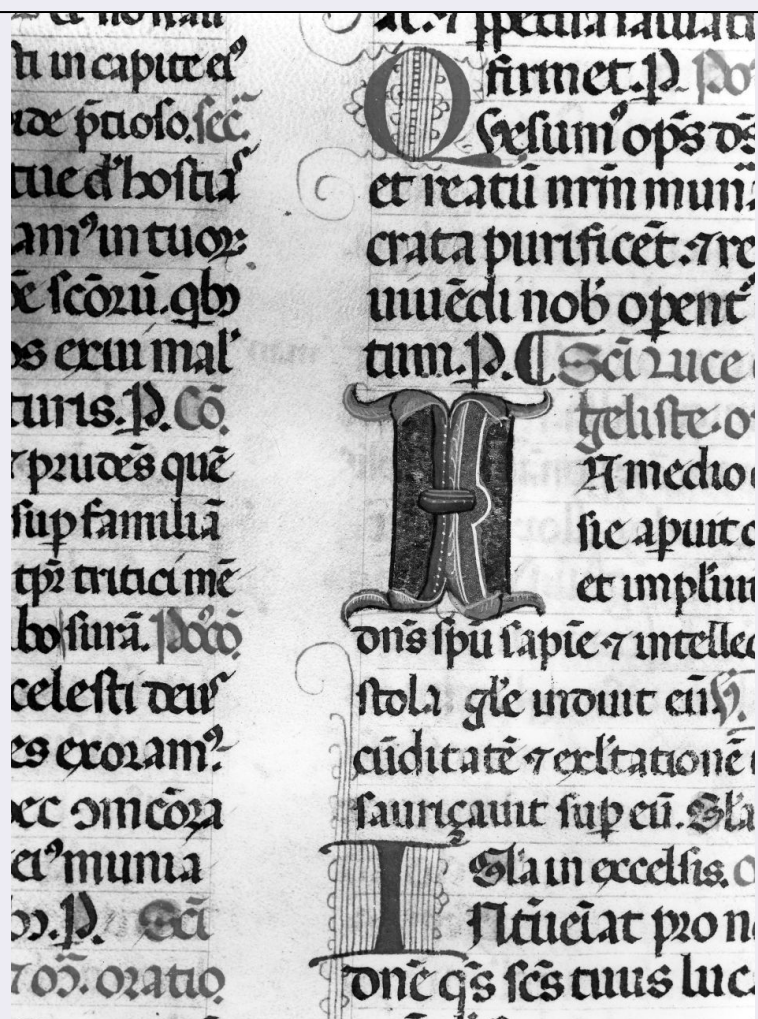 sti in capite ei⁹
ide p̄tioso. sec̄.
tue d' hostia
am⁹ in tuoꝝ
ē sc̄oꝝū. qb⁹
os exui mal'
turis. P. Cō
⁊ prudēs quē
sup familiā
tp̄r tritici mē
surā. Poꝰcō
celesti
es exoram⁹
ei⁹ munia
P. Sc̄i
oratio
firmet. P. Po
Q Vesum⁹ op̄s d̄s
et reatū nr̄m mun
crata purificēt. ⁊ re
uiuēdi nob̄ opent
tum. P. ¶ Sc̄i luce
geliste. o
IN medio
sie apuit
et impleuit
dn̄s sp̄u sapīe ⁊ intellec
stola gl̄e induit eū. V.
cūditatē ⁊ exl̄tationē
sauriçauit sup eū. Gl̄a
Gl̄a in excelsis. O
I nt̄ueīat pro n
dn̄e q̄s sc̄s tuus luc